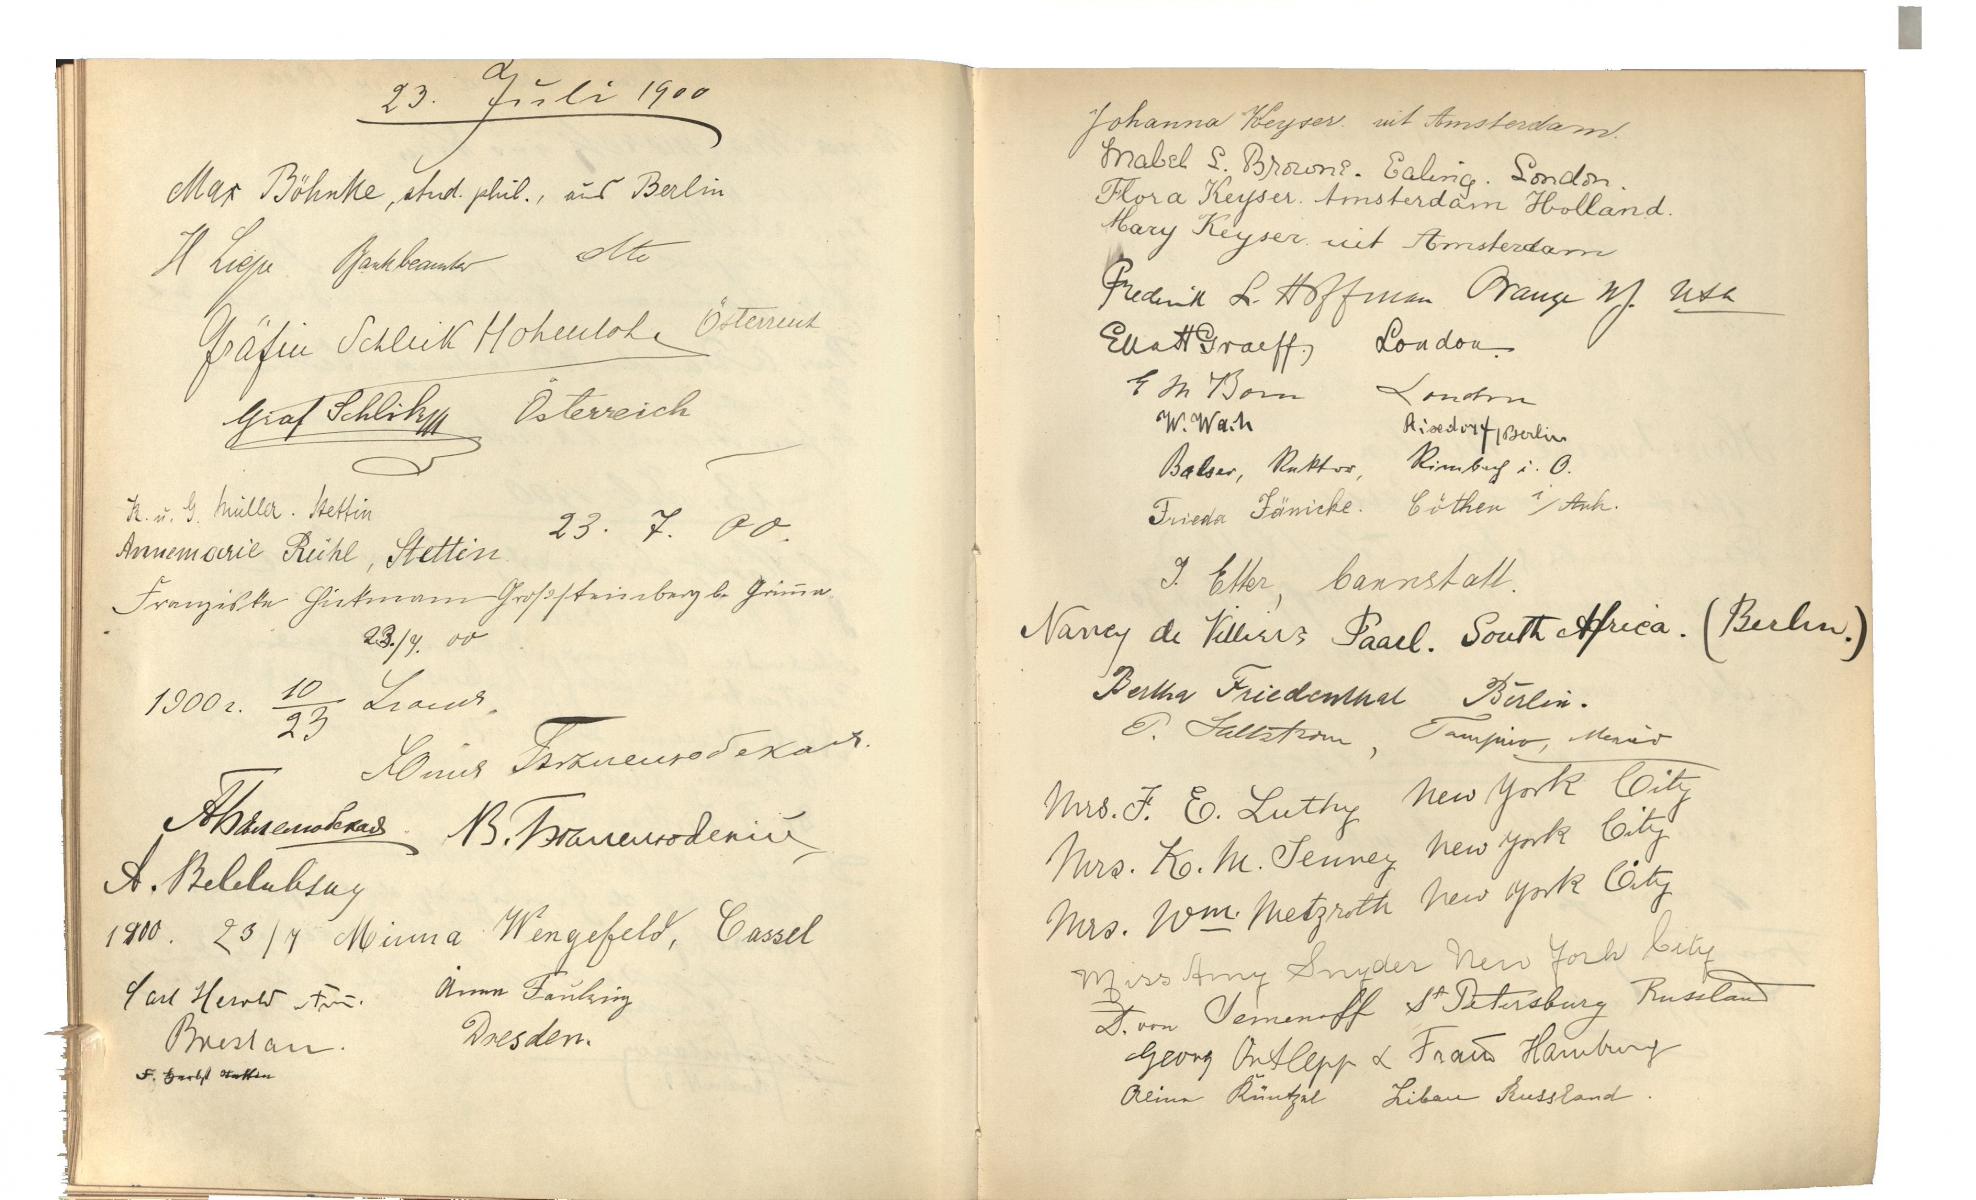 23. Juli 1900
Max Böhnke, stud. phil., aus Berlin
H Liepe Bankbeamter dto
Gräfin Schlik Hohenlohe Österreich
Graf Schlik Österreich
K. u. G. Müller. Stettin
23. 7. 00.
Annemarie Rühl, Stettin
Franziska Großsteinberg b. Grimma
23./7. 00
1900 г. 10/23
Юлия
A. Belelubsky
1900. 23/7 Minna Wengefeld, Cassel
Carl Herold
Breslau.
Anna
Dresden.
Johanna Keyser. uit Amsterdam.
Mabel L. Browne. Ealing. London.
Flora Keyser. Amsterdam Holland.
Mary Keyser. uit Amsterdam
Frederick L. Hoffman Orange NJ. USA
Ella H Graeff, London.
E M Born London
W. Berlin
Balser, Rektor, i. O.
Frieda Jänicke. Cöthen i/Anh.
J. Etter, Cannstatt.
Nancy de Villiers Paarl. South Africa. (Berlin.)
Bertha Friedenthal Berlin.
P. Tampico, Mexico
Mrs. F. E. Luthy New York City
Mrs. K. M. Tenney New York City
Mrs. Wm. Metzroth New York City
Miss Amy Snyder New York City
D. von Semenoff St Petersburg Russland
Georg Ortlepp & Frau Hamburg
Küntzel Libau Russland.